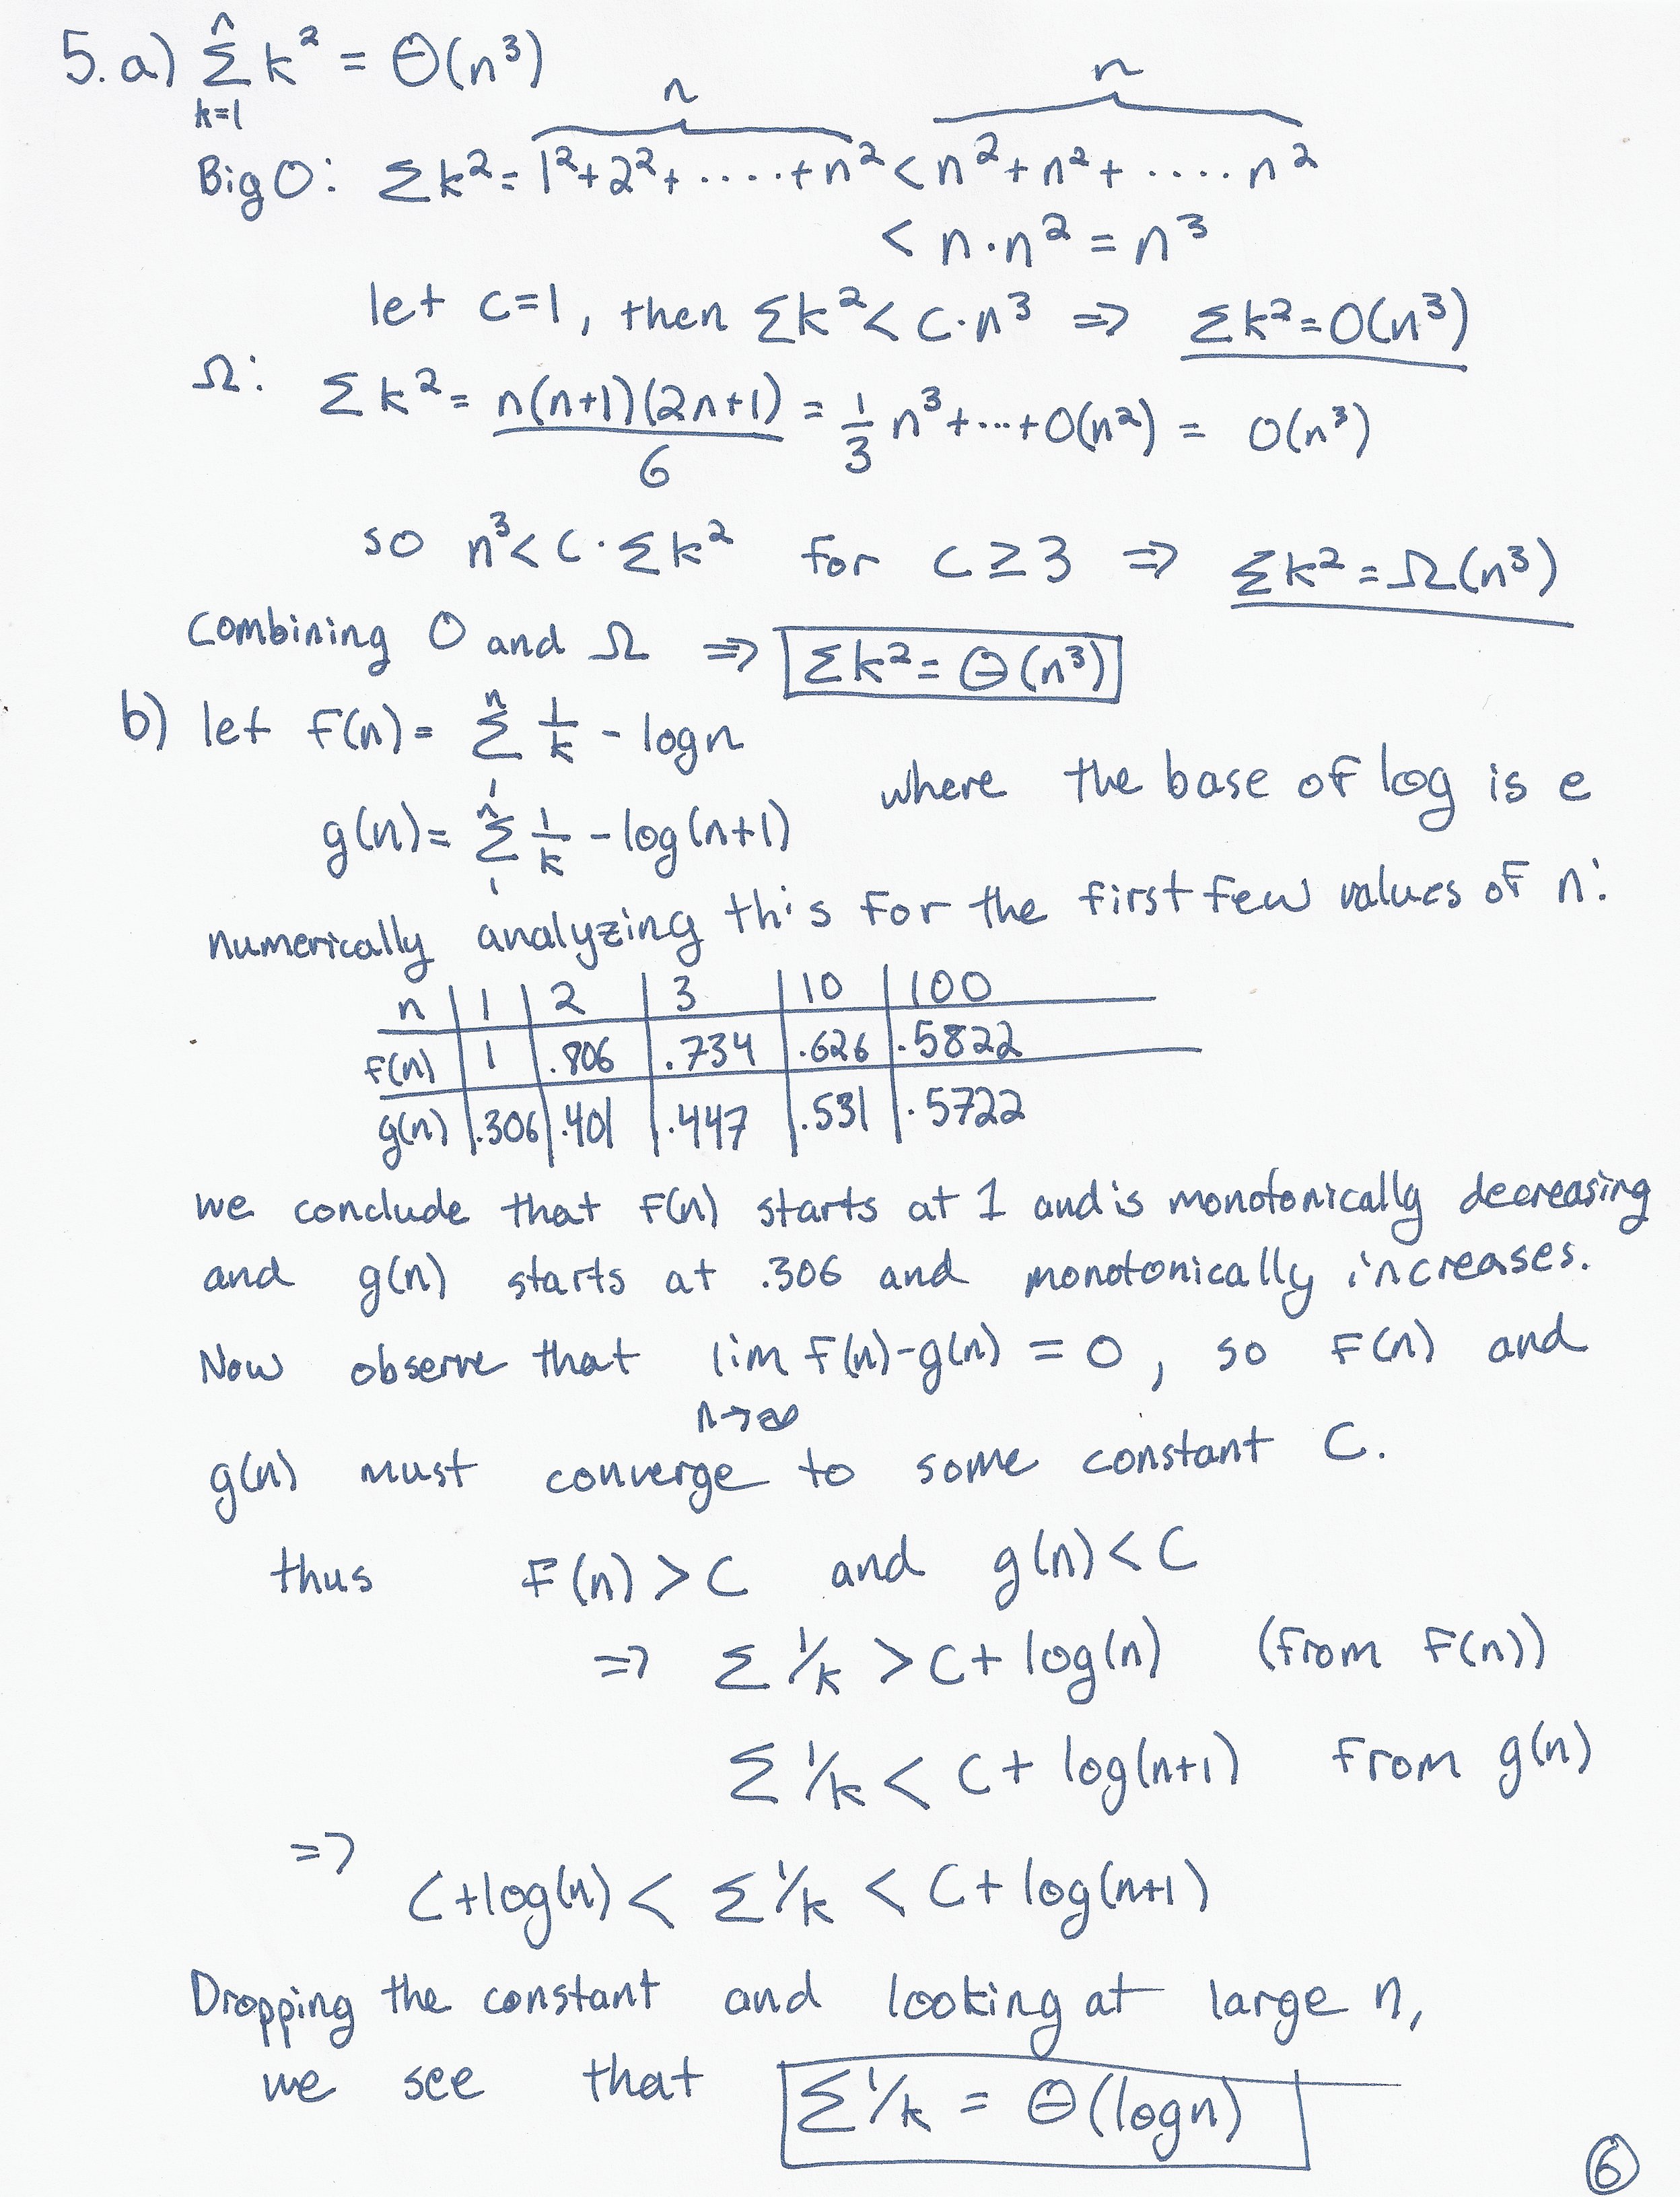 5. a) n∑k=1 k² = Θ(n³)
n n
Big O: ∑k² = 1²+2²+.....+n² < n²+n²+ .... n²
< n·n² = n³
let c=1, then ∑k² < c·n³ ⇒ ∑k² = O(n³)
Ω: ∑k² = n(n+1)(2n+1)/6 = 1/3 n³+...+O(n²) = O(n³)
so n³ < c·∑k² for c ≥ 3 ⇒ ∑k² = Ω(n³)
Combining O and Ω ⇒ ∑k² = Θ(n³)
b) let f(n) = n∑1 1/k - logn
g(n) = n∑1 1/k - log(n+1) where the base of log is e
numerically analyzing this for the first few values of n:
n 1 2 3 10 100
f(n) 1 .806 .734 .626 .5822
g(n) .306 .401 .447 .531 .5722
we conclude that f(n) starts at 1 and is monotonically decreasing
and g(n) starts at .306 and monotonically increases.
Now observe that lim n→∞ f(n)-g(n) = 0, so f(n) and
g(n) must converge to some constant C.
thus f(n) > C and g(n) < C
⇒ ∑ 1/k > C + log(n) (from f(n))
∑ 1/k < C + log(n+1) from g(n)
⇒
C+log(n) < ∑ 1/k < C + log(n+1)
Dropping the constant and looking at large n,
we see that ∑ 1/k = Θ(logn)
6